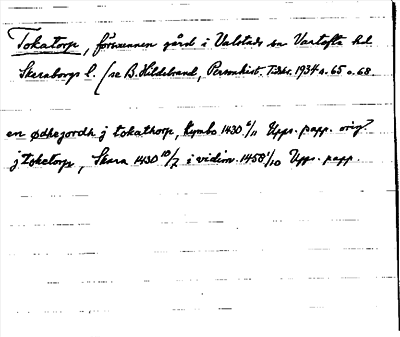 Tokatorp, försvunnen gård i Valstads sn Vartofta hd
Skaraborgs l. (se B. Hildebrand, Personhist. Tidskr. 1934 s. 65 o. 68.
en ødhegordh j tokathorp, Kymbo 1430 6/11 Upps. papp. orig.
j toketorp, Skara 1430 10/7 i vidim. 1458 1/10 Upps. papp.